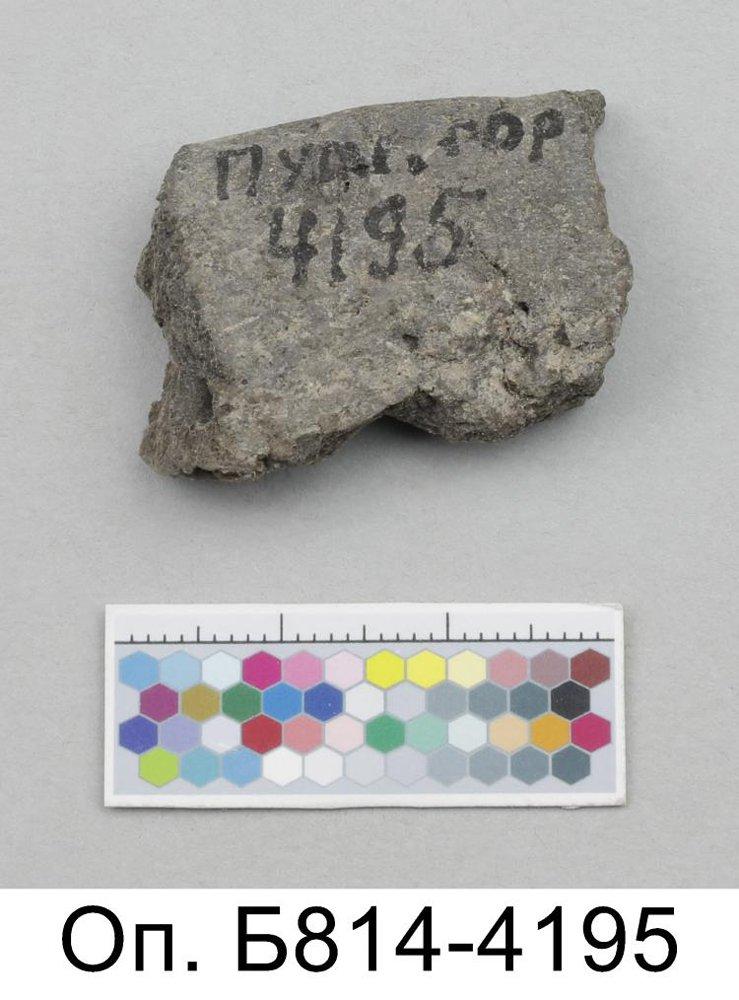 Пути. гор
4195
Оп. Б814-4195